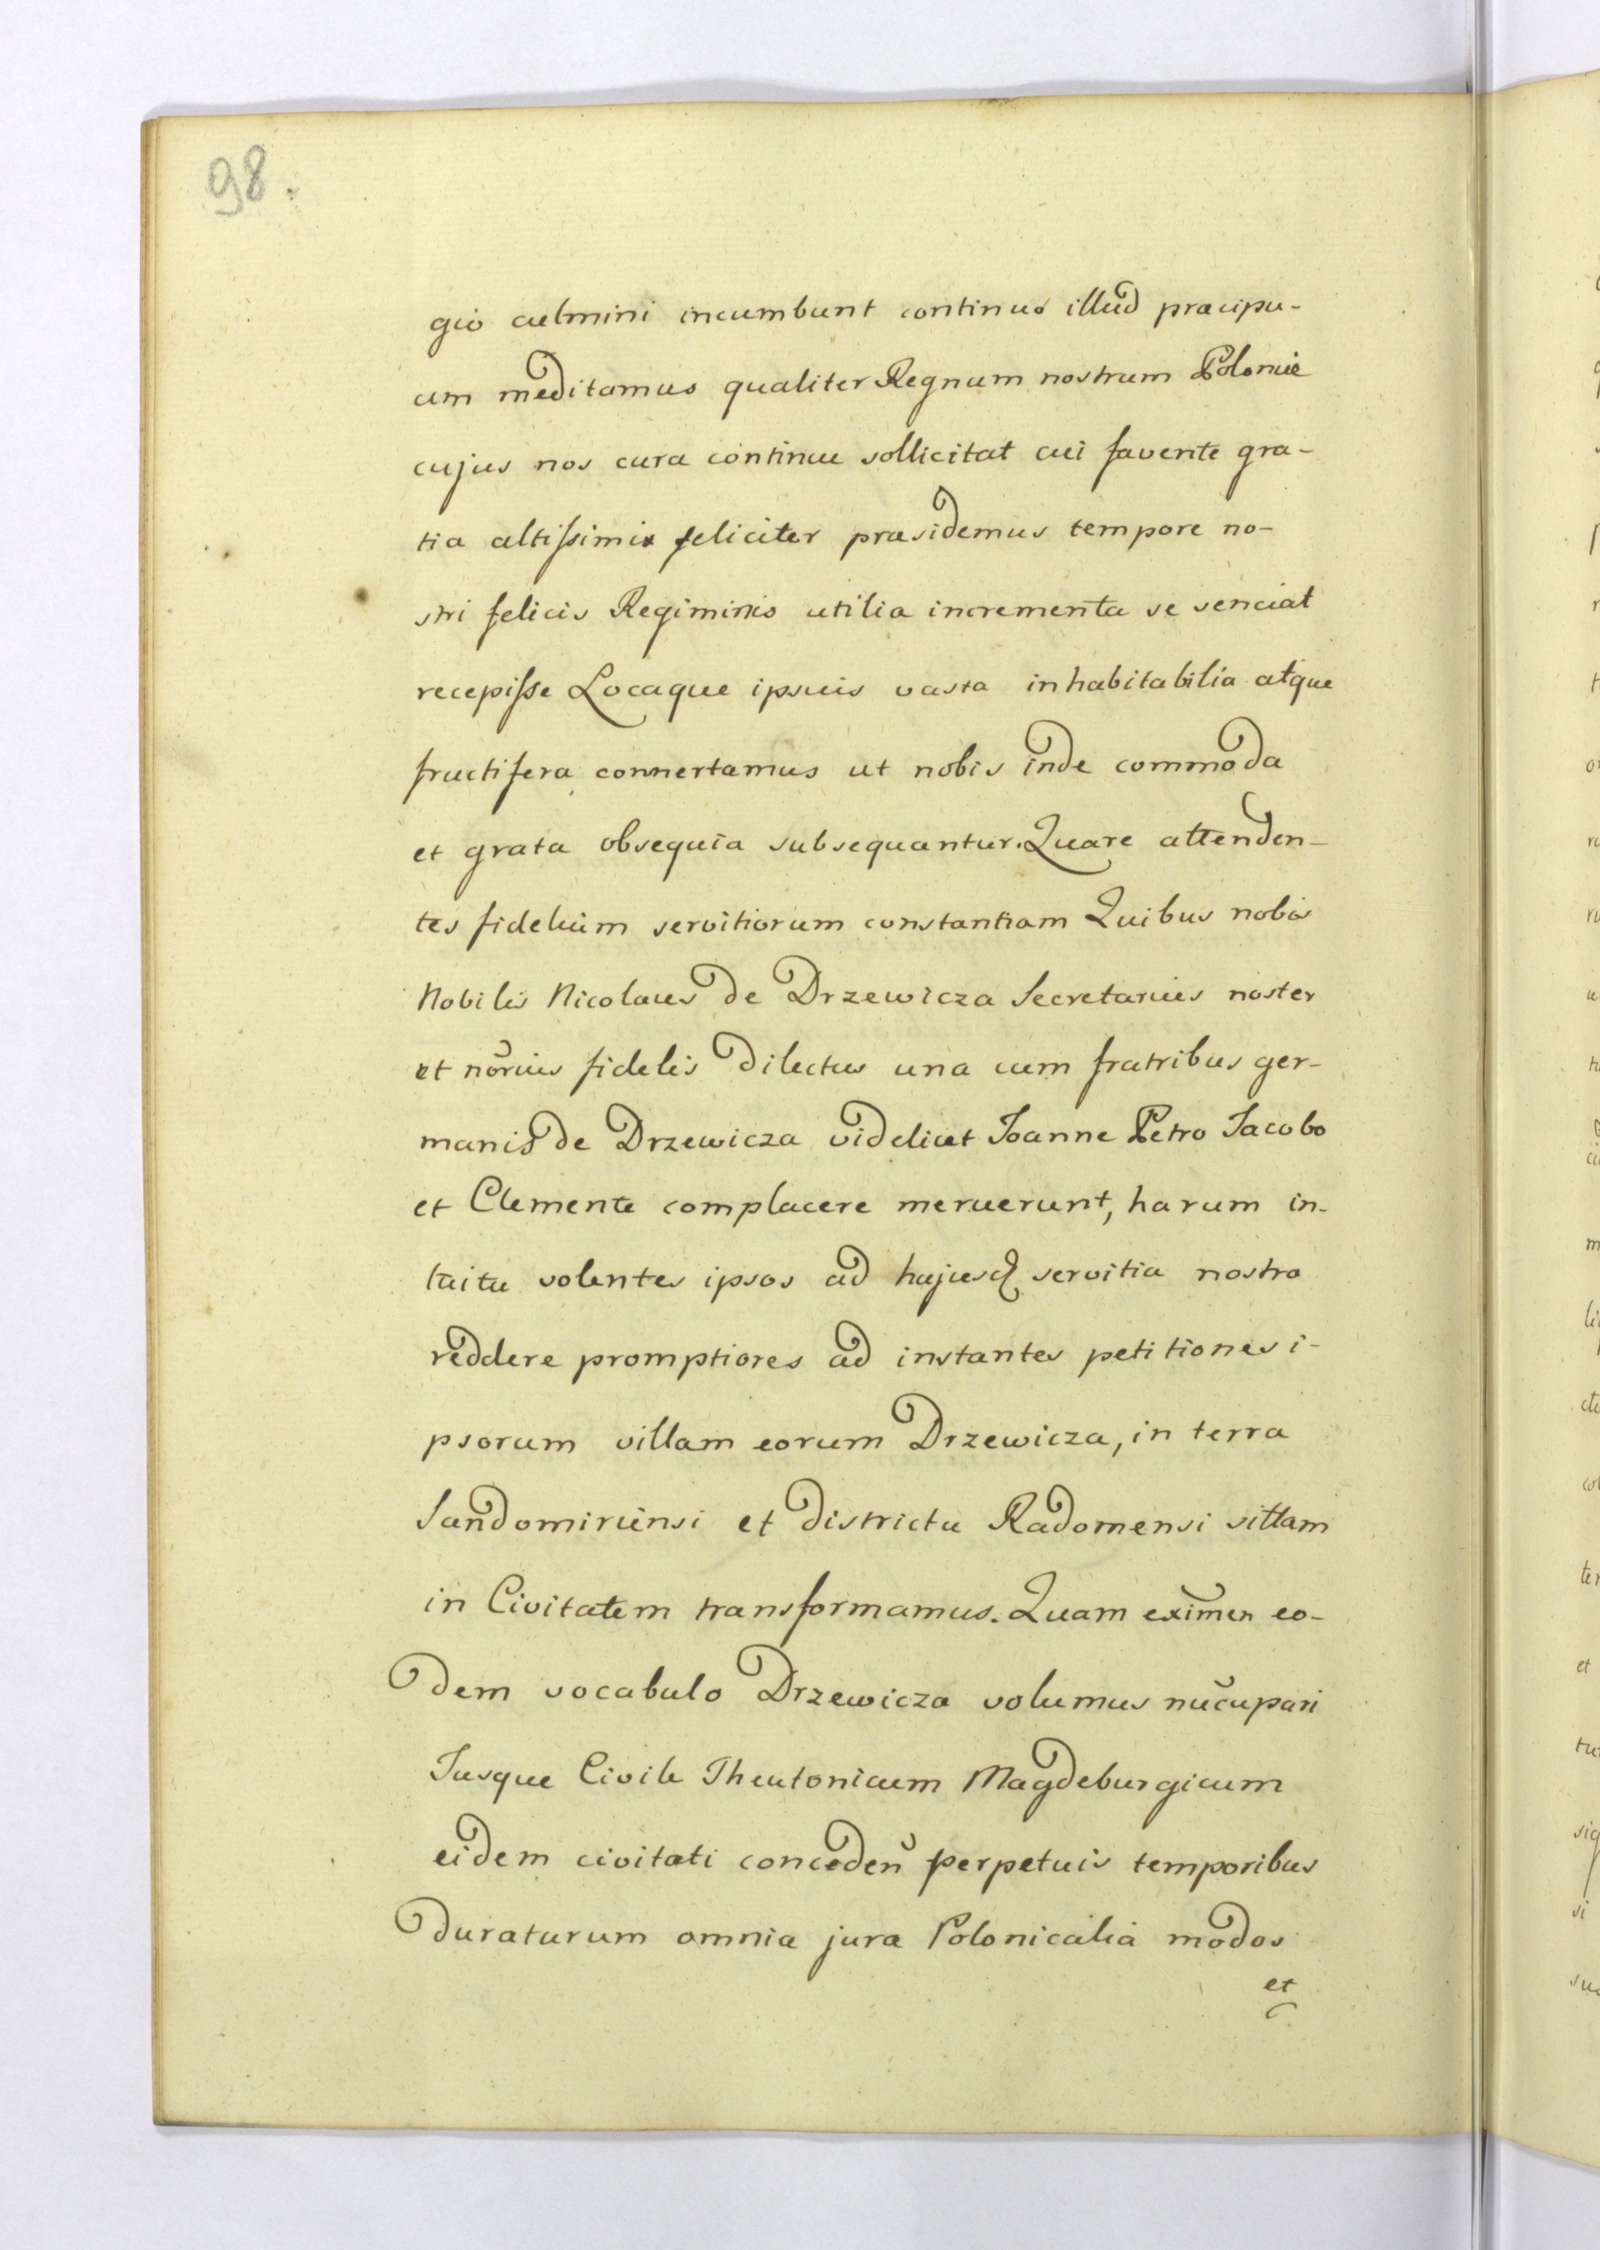 98.
gio culmini incumbunt continuo illud præcipu-
um meditamus qualiter Regnum nostrum Poloniæ
cujus nos cura continue sollicitat cui favente gra-
tia altissimi feliciter præsidemus tempore no-
stri felicis Regiminis utilia incrementa se senciat
recepisse Locaque ipsius vasta inhabitabilia atque
fructifera connertamus ut nobis inde commoda
et grata obsequia subsequantur. Quare attenden-
tes fidelium servitiorum constantiam Quibus nobis
Nobilis Nicolaus de Drzewicza Secretarius noster
et norius fidelis dilectus una cum fratribus ger-
manis de Drzewicza videlicet Joanne Petro Jacobo
et Clemente complacere meruerunt, harum in-
tuitu volentes ipsos ad hujusq servitia nostra
reddere promptiores ad instantes petitiones i-
psorum villam eorum Drzewicza, in terra
Sandomiriensi et districtu Radomensi sittam
in Civitatem transformamus. Quam eximen eo-
dem vocabulo Drzewicza volumus nūcupari
Jusque Civile Theutonicum Magdeburgicum
eidem civitati concedeñ perpetuis temporibus
duraturum omnia jura Polonicalia modos
et